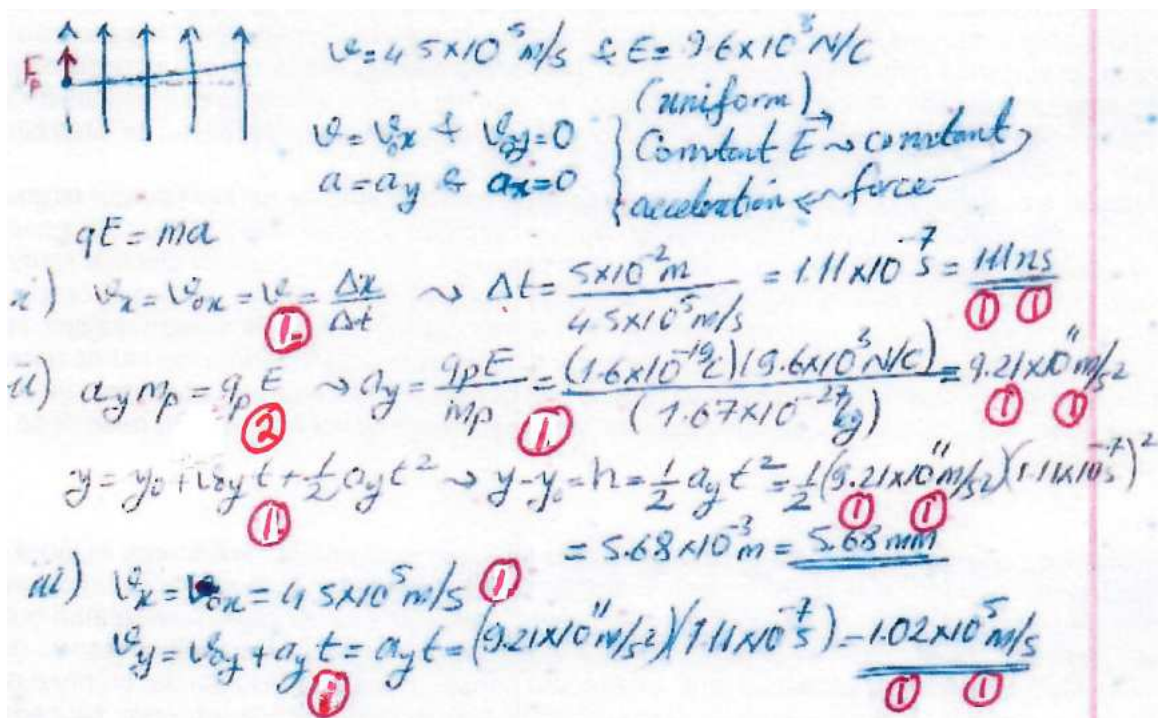 v = 4.5×10⁵ m/s & E = 9.6×10³ N/C
F_P
(uniform)
v = v₀x & v₀y = 0 { Constant E⃗ → constant
a = a_y & a_x = 0 { acceleration ← force
qE = ma
i) v_x = v₀x = v = Δx/Δt → Δt = 5×10⁻² m / 4.5×10⁵ m/s = 1.11×10⁻⁷ s = 111 ns
① ① ①
ii) a_y m_p = q_p E → a_y = q_p E / m_p = (1.6×10⁻¹⁹ C)(9.6×10³ N/C) / (1.67×10⁻²⁷ kg) = 9.21×10¹¹ m/s²
② ① ① ①
y = y₀ + v₀y t + ½ a_y t² → y - y₀ = h = ½ a_y t² = ½ (9.21×10¹¹ m/s²)(1.11×10⁻⁷ s)²
① ① ①
= 5.68×10⁻³ m = 5.68 mm
iii) v_x = v₀x = 4.5×10⁵ m/s ①
v_y = v₀y + a_y t = a_y t = (9.21×10¹¹ m/s²)(1.11×10⁻⁷ s) = 1.02×10⁵ m/s
① ① ①